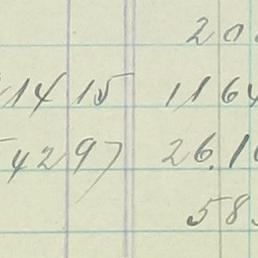 20
1415 1164
4297 26.1
58